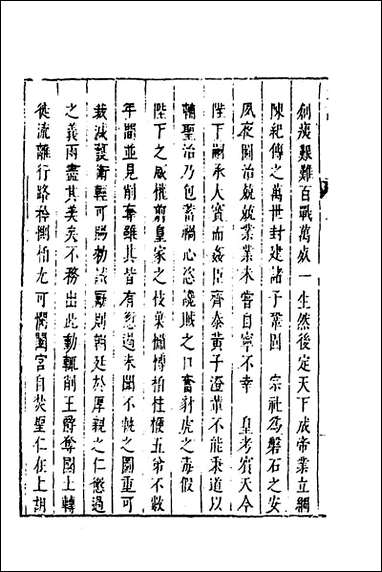 創痍艱難百戰萬死一生然後定天下成帝業立綱
陳紀傳之萬世封建諸子鞏固　宗社為磐石之安
夙夜圖治兢兢業業未嘗自寧不幸　皇考賓天今
陛下嗣承大寶而姦臣齊泰黃子澄輩不能秉道以
輔聖治乃包蓄禍心恣讒賊之口奮豺虎之毒假
陛下之威權剪皇家之枝葉橚榑栢桂楩五弟不數
年間並見削奪雖其皆有愆過未聞不軌之圖重可
裁減護衛輕可賜勑誡厲則朝廷於厚親之仁懲過
之義兩盡其美矣不務出此動輒削王爵奪國土轉
徙流離行路矜惻栢尤可憫闔宮自焚聖仁在上胡